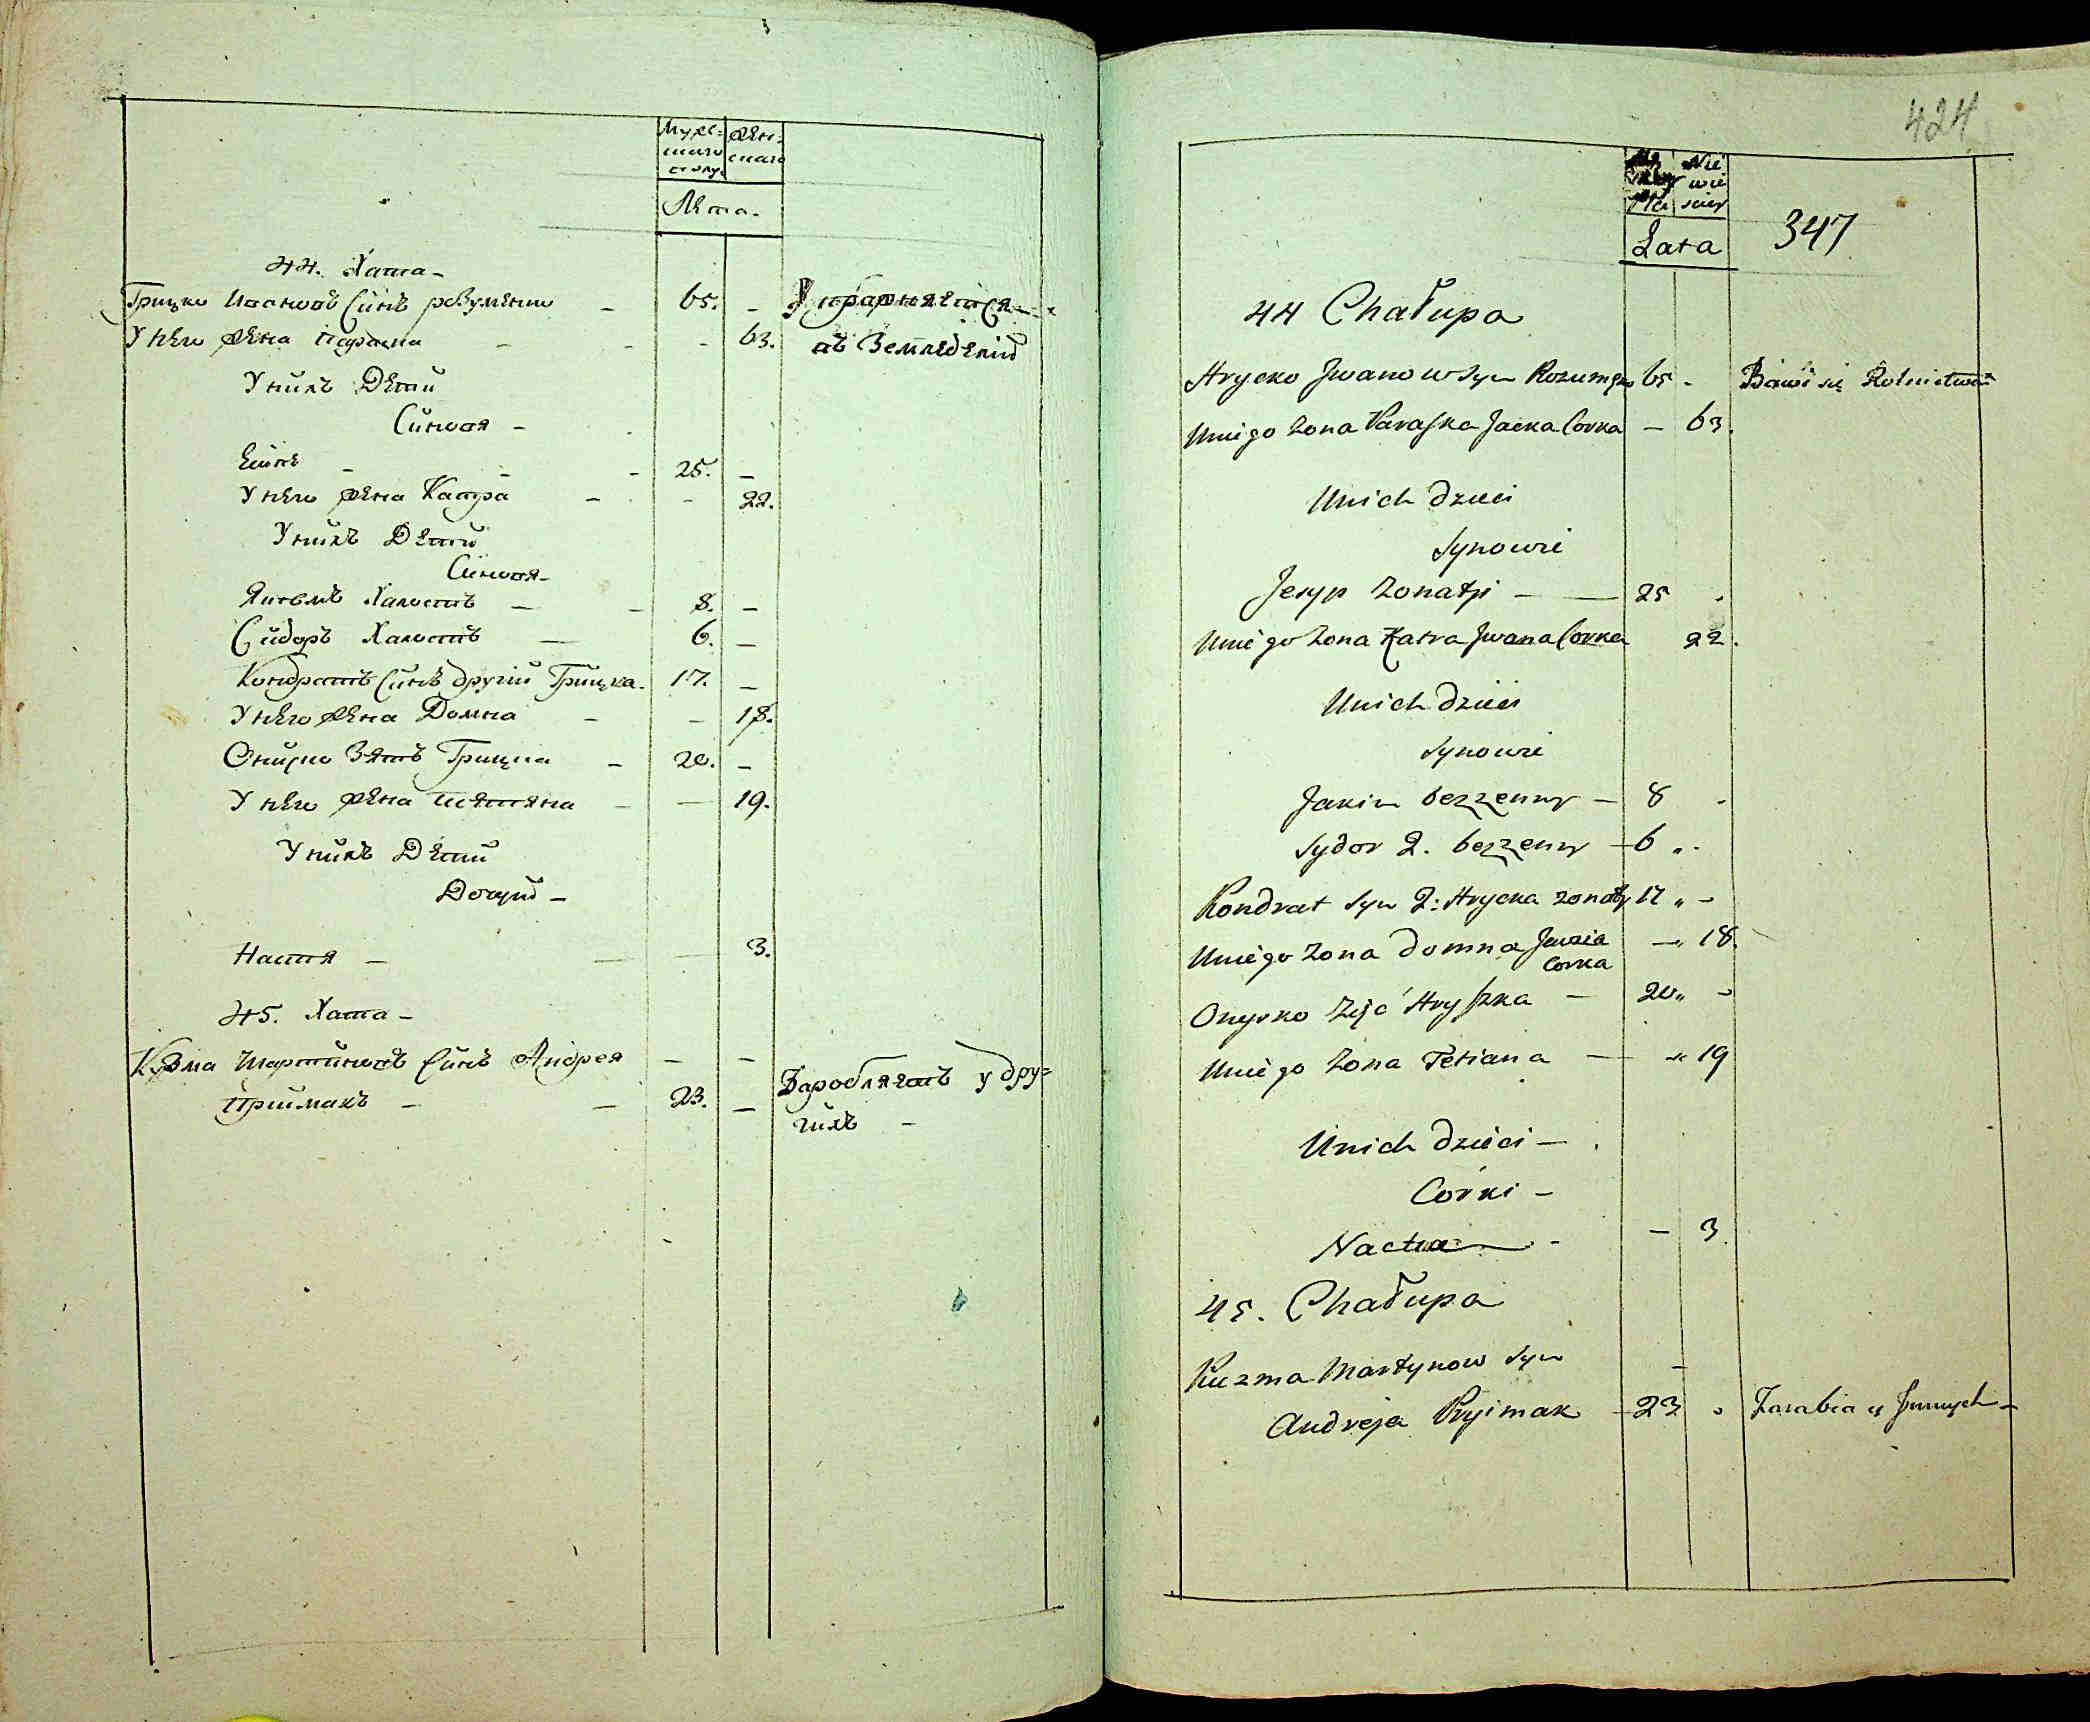 Мужс=
шаго
Жен=
скаго
Лета.
44. Хата
Грицко Івановъ Синъ розуменко 65.
У него жена параска 63.
У нихъ Дети
Синовя
Есипъ 25.
У него жена Катра 22.
У нихъ Дети
Синовя
Якимъ Холостъ 8.
Сидоръ Холостъ 6.
Кондратъ Синъ другий Грицка. 17.
У него жена Домна 18.
Ониско Зять Грицка 20.
У него жена тетяна 19.
У нихъ Дети
Дочери
Настя 3.
45. Хата
Кузма Мартиновъ Синъ Андрея
Приймакъ 23.
Упражняется
въ Земледелий
Заробляетъ у дру=
гихъ
424
Nie
wie
sciey
Lata
347
44 Chałupa
Hrycko Jwanow Syn Rozumenko 65 Bawi się Rolnictwem
Uniego żona Paraska Jacka Corka 63.
Unich dzieci
Synowie
Jesyp żonaty 25
Uniego żona Katra Jwana Corka 22.
Unich dzieci
Synowie
Jakim bezzenny 8
Sydor 2. bezzenny 6
Kondrat Syn 2: Hrycka żonaty 17
Uniego żona Domna
Corka 18.
Onysko Zięć Hryszka 20
Uniego żona Tetiana 19
Unich dzieci
Córki
Nastia 3.
45. Chałupa
Kuzma Martynow Syn
Andreja Pryimak 23 Zarabia u Jnnych